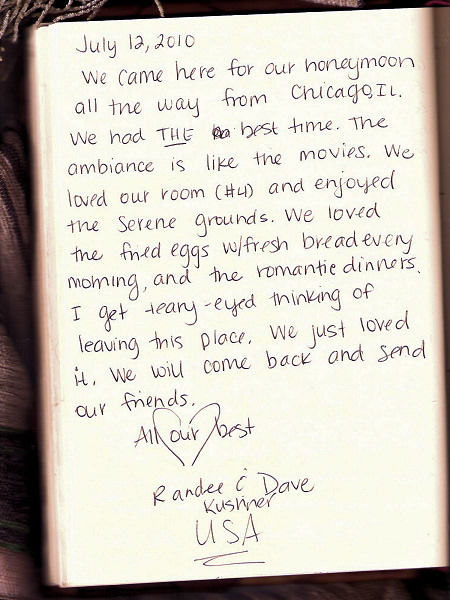 July 12, 2010
We came here for our honeymoon
all the way from Chicago, IL.
We had THE best time. The
ambiance is like the movies. We
loved our room (#4) and enjoyed
the serene grounds. We loved
the fried eggs w/fresh bread every
morning, and the romantic dinners.
I get teary-eyed thinking of
leaving this place. We just loved
it. We will come back and send
our friends.
All our best
Randee & Dave
Kushner
USA